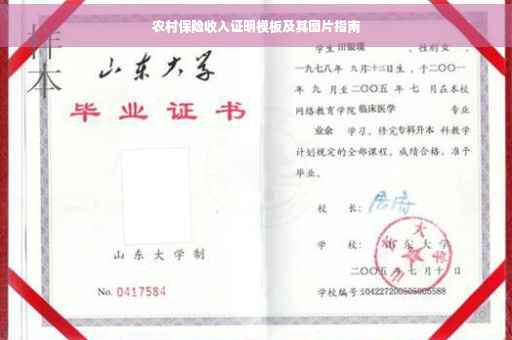 农村保险收入证明模板及其图片指南
样本
山东大学
毕业证书
山东大学制
No. 0417584
学生田银瑛 ，性别女，
一九七八年 九月十三日生，于二〇〇一
年 九 月至二〇〇五 年 七 月在本校
网络教育学院临床医学 专业
业余 学习，修完专科升本 科教学
计划规定的全部课程，成绩合格，准予
毕业。
校 长：
学 校： 山东大学
二〇〇五年七月十日
学校编号:104227200505005588